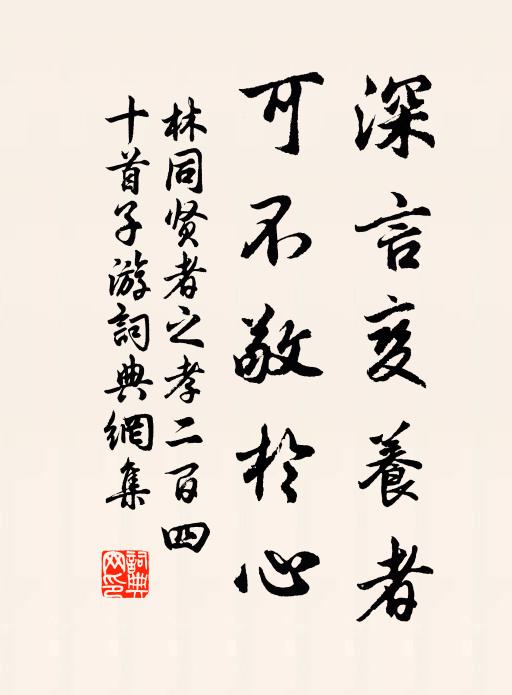 深言養者
可不敬於心
林同贤者之孝二百四
十首子游詞典網集
詞典
网印